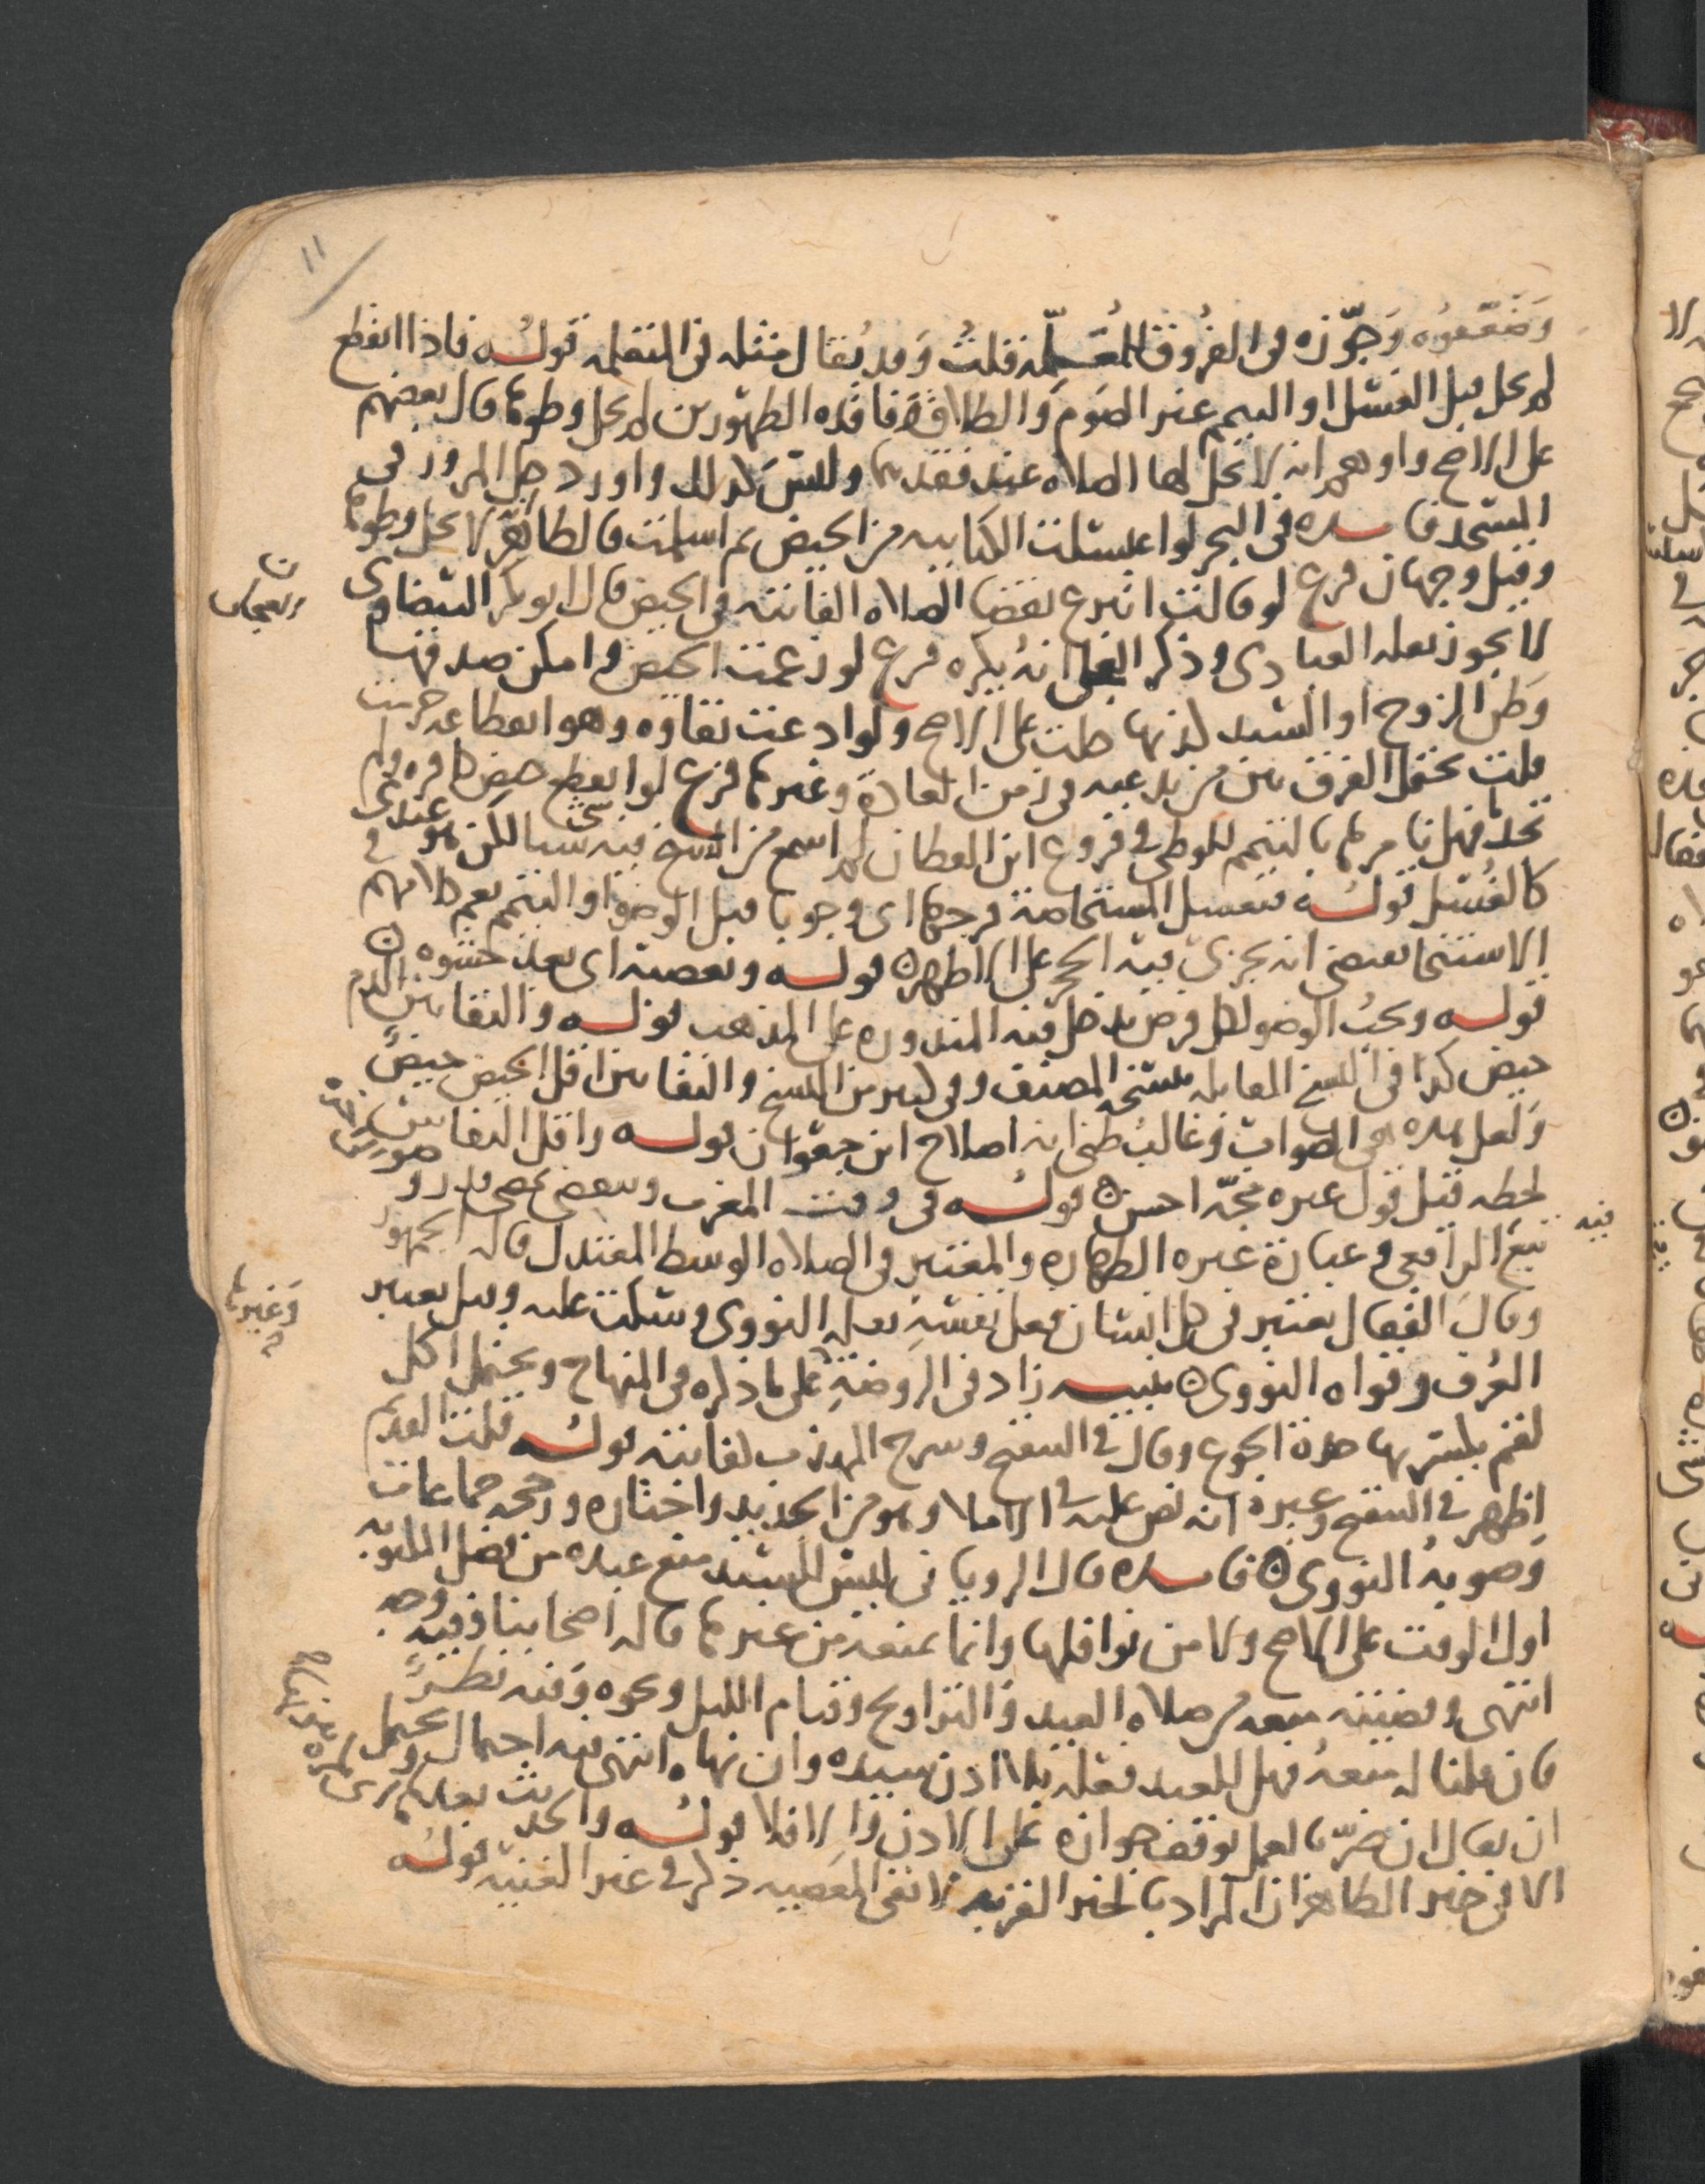 ١١
وضعفوه وجوزه في الفروق للمعلمة قلت وقد يقال مثله في المتعلمه قوله فاذا انقطع
لم يحل قبل الغسل او التيمم غير الصوم والطلاق فاقده الطهورين لا يحل وطوها قال بعضهم
على الاصح واوهم انه لا تحل لها الصلاه عند فقدهما وليس كذلك واورد حل المرور في
المسجد فايده في البحر لو اغتسلت الكتابيه من الحيض ثم اسلمت فالظاهر لا يحل وطوها
وقيل وجهان فرع لو قالت اتبرع بقضا الصلاه الفايته في الحيض قال ابو بكر البيضاوي
لا يجوز نقله العبادي وذكر انه يكره فرع لو زعمت الحيض وامكن صدقها
وظن الزوج او السيد كذبها حلت على الاصح ولو ادعت بقاوه وهو انقطاعه حرمت
قلت يحتمل الفرق بين من يدعيه في زمن العادة وغيرها فرع لو انقطع حيض كافره ولم
تجد ما فهل نامرها بالتيمم للوطى في فروع ابن القطان لم اسمع من الشيخ فيه شيا لكن هو عندي
كالغسل قوله فتغسل المستحاضة فرجها اي وجوبا قبل الوضو او التيمم نعم كلامهم في
الاستنجا يقتضي انه يجزي فيه الحجر على الاظهر قوله وتعصبه اي بعد حشوه
قوله ويجب الوضو لكل فرض يدخل فيه المنذوره على المذهب قوله والنقا بين الدم
حيض كذا في النسخ المقابله بنسخه المصنف وفي كثير من النسخ والنقا بين اقل الحيض حيض
ولعل هذه هي الصواب وغالب ظني انه اصلاح ابن جعوان قوله واقل النفاس
لحظه قيل قول غيره مجة احسن قوله في وقت المغرب
تبع الرافعي وعبارة غيره الطهاره والمعتبر في الصلاه الوسط المعتدل قاله الجمهور
وقال القفال يعتبر في كل انسان فعل نفسه نقله النووي وسكت عليه وقيل يعتبر
العرف وقواه النووي تنبيه زاد في الروضة على ما ذكره في المنهاج ويحتمل اكل
لقم يكسر بها حدة الجوع وقال في التنقيح وشرح المهذب كفايته قوله قلت القديم
اظهر في التنقيح وغيره انه نص عليه في الاملا وهو من الجديد واختاره ورجحه جماعات
وصوبه النووي فايده قال الروياني ليس للسيد منع عبده من فعل المكتوبه
اول الوقت على الاصح ولا من نوافلها وانما يمنعه من غيرها قاله اصحابنا وفيه وجه
انتهى وقضيته منعه من صلاه العيد والتراويح وقيام الليل ونحوه وفيه نظر
فان قلنا له منعه فهل للعبد فعله بلا اذن سيده وان نهاه انتهى فيه احتمال يحتمل
ان يقال ان ضر بالعمل توقف جوازه على الاذن والا فلا قوله والحديث بعدها
الا في خير الظاهر ان المراد بالخير القربه لا نفي المعصيه ذكره في غير الغنيه قوله
فيه
وغيرها